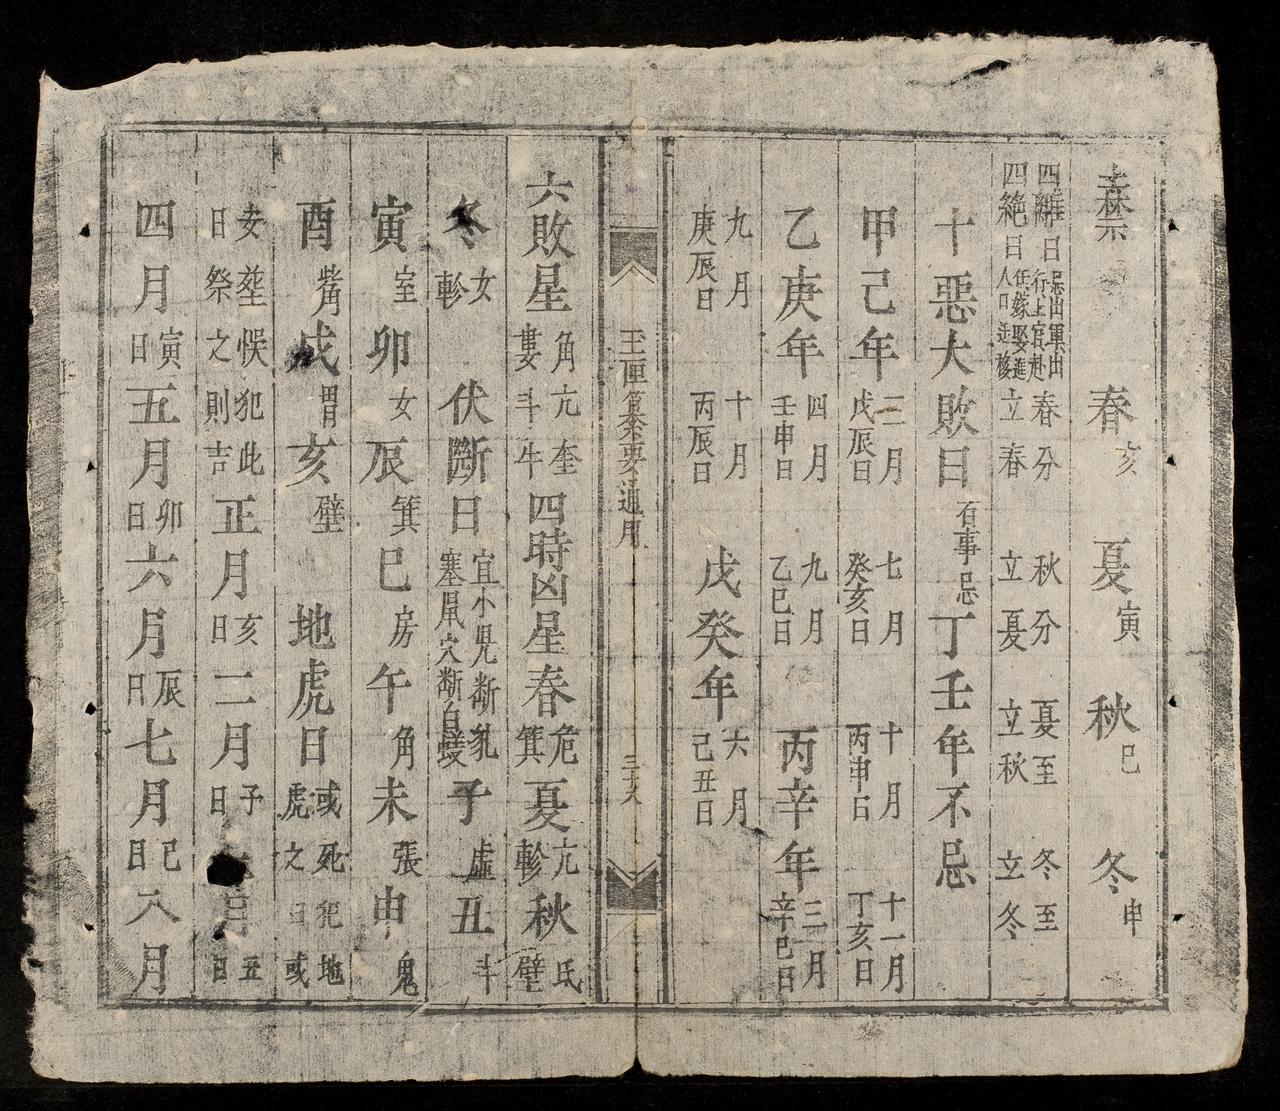 春亥 夏寅 秋巳 冬申
四離日 忌出軍出行上官赴 春分 秋分 夏至 冬至
四絶日 任嫁娶進人口迁移 立春 立夏 立秋 立冬
十惡大敗日 百事忌 丁壬年不忌
甲己年 三月戊辰日 七月癸亥日 十月丙申日 十一月丁亥日
乙庚年 四月壬申日 九月乙巳日 丙辛年 三月辛巳日
九月庚辰日 十月丙辰日 戊癸年 六月己丑日
玉匣纂要通用
六敗星 角亢奎婁斗牛 四時凶星 春危箕 夏亢軫 秋氐壁
冬女軫 伏斷日 宜小児斷乳塞鼠穴斷白蟻 子虛 丑斗
寅室 卯女 辰箕 巳房 午角 未張 申鬼
酉觜角 戌胃 亥壁 地虎日 或死犯地虎之日或
安塟悞犯此日祭之則吉 正月亥日 二月子日 月丑日
四月寅日 五月卯日 六月辰日 七月巳日 八月